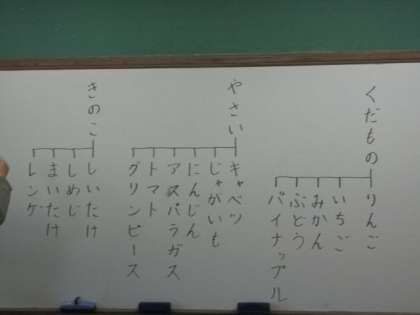 くだもの
りんご
いちご
みかん
ぶどう
パイナップル
やさい
キャベツ
じゃがいも
にんじん
アスパラガス
トマト
グリンピース
きのこ
しいたけ
しめじ
まいたけ
レンゲ